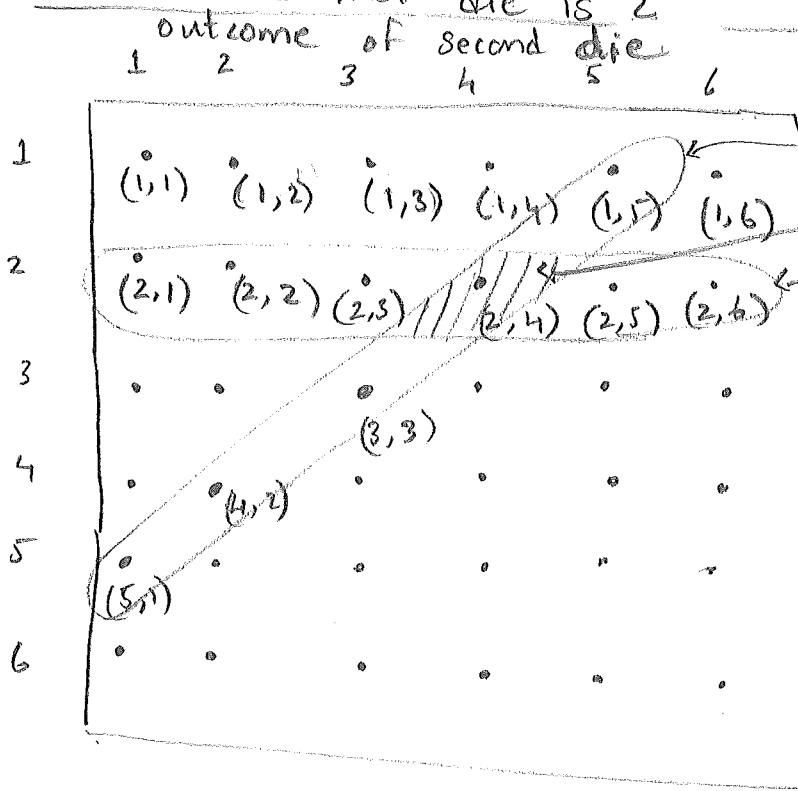 die is 2
outcome of second die
1 2 3 4 5 6
1
(1,1) (1,2) (1,3) (1,4) (1,5) (1,6)
2
(2,1) (2,2) (2,3) (2,4) (2,5) (2,6)
3
(3,3)
4
(4,2)
5
(5,1)
6